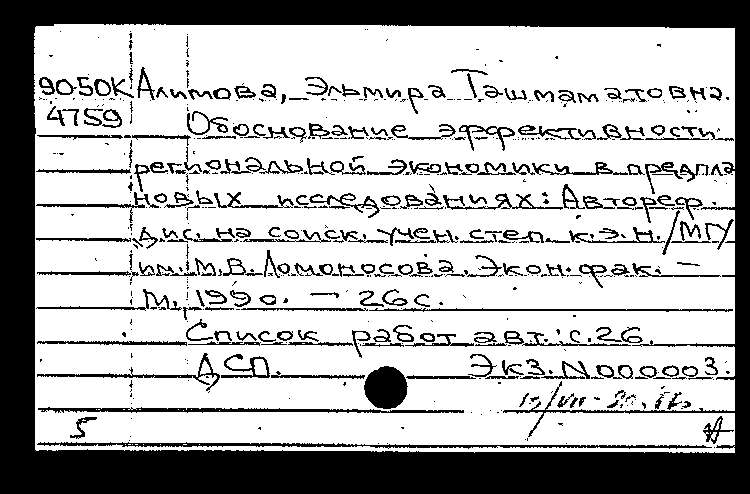 90-50К Алимова, Эльмира Ташматовна.
4759 Обоснование эффективности
региональной экономики в предпла
новых исследованиях: Автореф.
дис. на соиск. учен. степ. к.э.н./МГУ
им. М.В. Ломоносова. Экон. фак. —
М., 1990. — 26 с.
Список работ авт.: с. 26.
ДСП. Экз. N 000003.
5